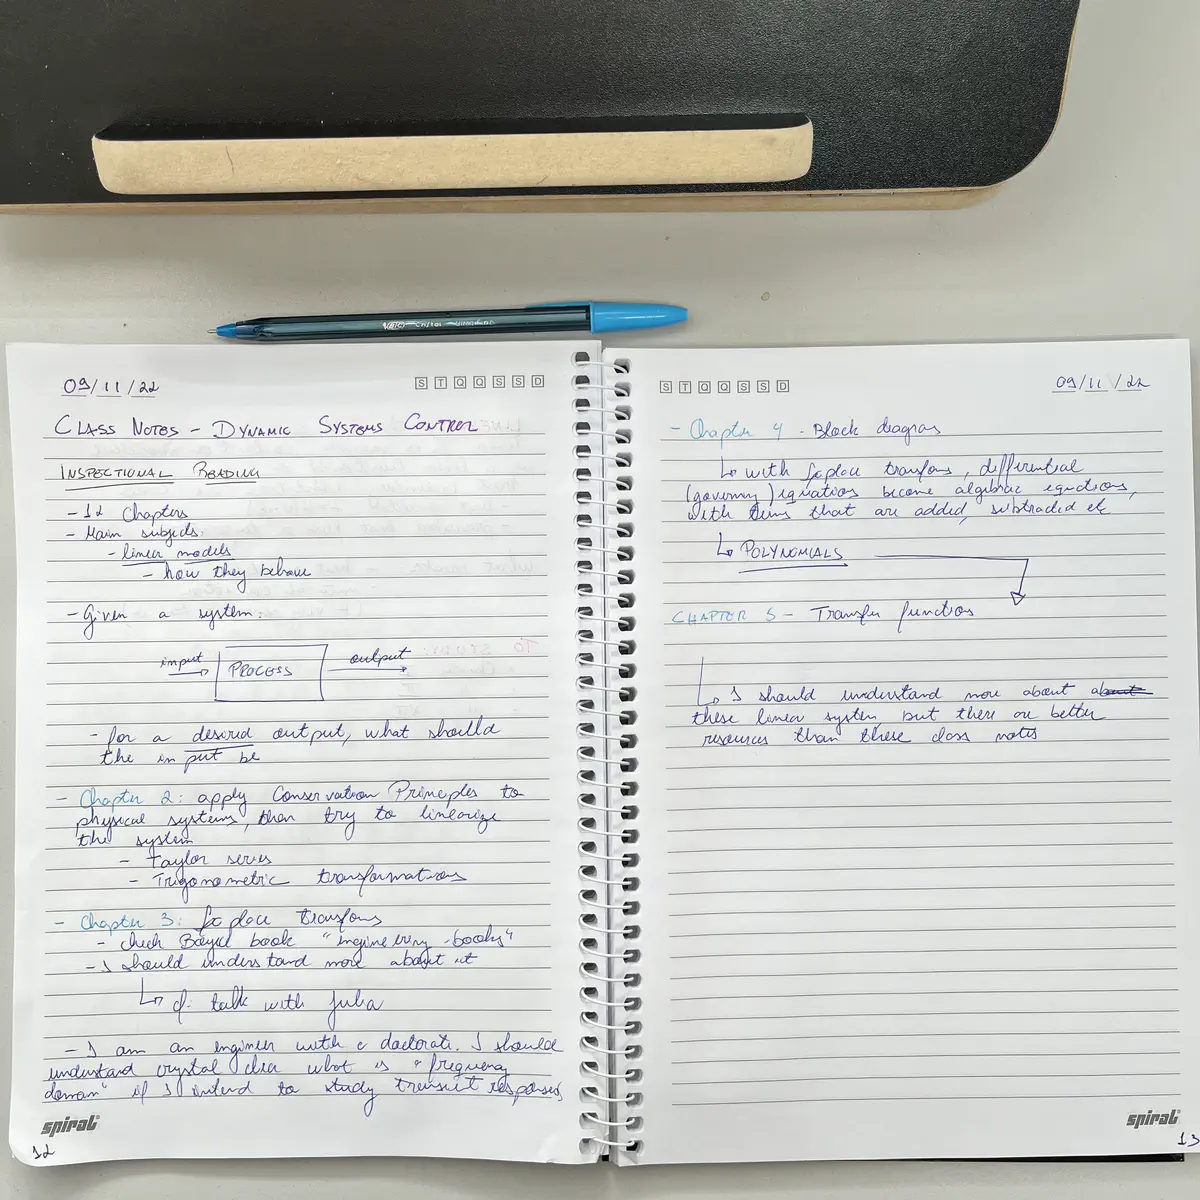 09/11/22
S T Q Q S S D
CLASS NOTES - DYNAMIC SYSTEMS CONTROL
INSPECTIONAL READING
- 12 Chapters
- Main subjects:
- linear models
- how they behave
- Given a system:
input
PROCESS
output
- for a desired output, what should
the input be
- Chapter 2: apply Conservation Principles to
physical systems, then try to linearize
the system
- Taylor series
- Trigonometric transformations
- Chapter 3: Laplace transfons
- check book "engineering-books"
- I should understand more about it
talk with Julia
- I am an engineer with a doctorate. I should
understand crystal clear what is "frequency
domain" if I intend to study transient responses
spiral
12
S T Q Q S S D
09/11/22
- Chapter 4 - Block diagrams
with Laplace transfons, differential
(governing) equations become algebraic equations,
with terms that are added, subtracted etc
POLYNOMIALS
CHAPTER 5 - Transfer functions
I should understand more about
these linear system, but there are better
resources than these class notes
spiral
13